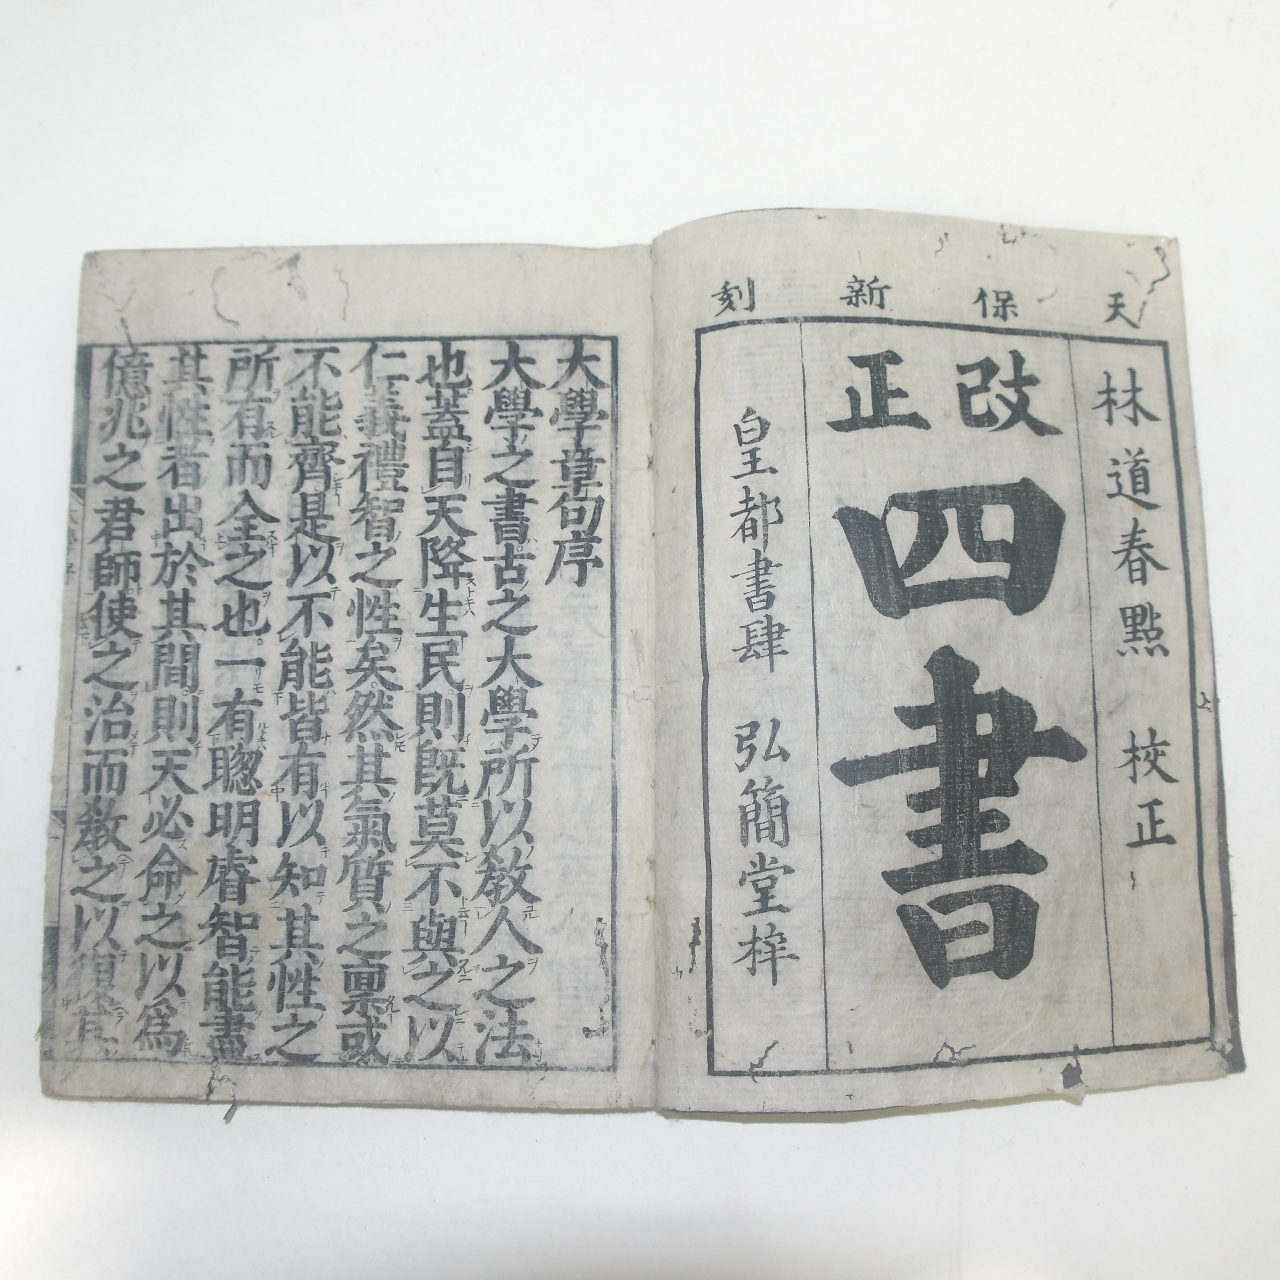 天保新刻
林道春點 校正
改正
四書
皇都書肆 弘簡堂梓
大學章句序
大學之書古之大學所以敎人之法
也蓋自天降生民則旣莫不與之以
仁義禮智之性矣然其氣質之稟或
不能齊是以不能皆有以知其性之
所有而全之也一有聰明睿智能盡
其性者出於其間則天必命之以爲
億兆之君師使之治而敎之以復其